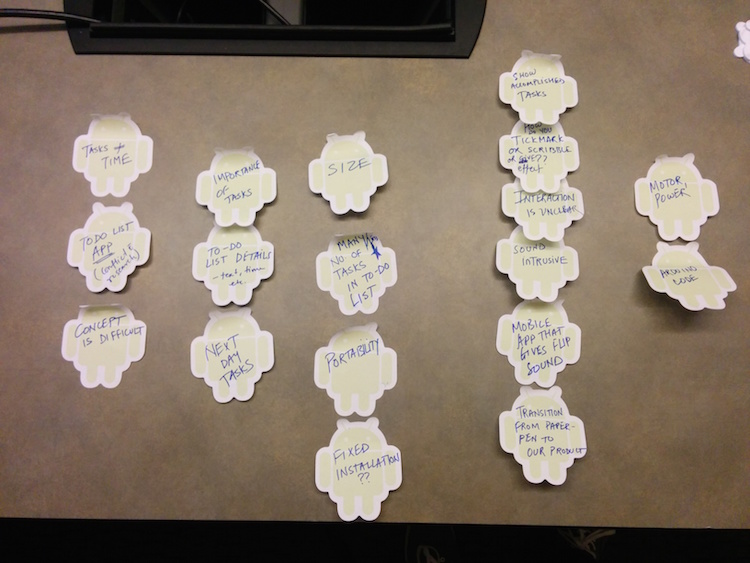 TASKS &
TIME
TODO LIST
APP
CONCEPT
IS DIFFICULT
IMPORTANCE
OF
TASKS
TO-DO
LIST DETAILS
- text, time
etc.
NEXT
DAY
TASKS
SIZE
MANY
NO OF
TASKS
IN TO-DO
LIST
PORTABILITY
FIXED
INSTALLATION
??
SHOW
ACCOMPLISHED
TASKS
HOW
DO YOU
TICKMARK
OR SCRIBBLE
OR ??
effect
INTERACTION
IS UNCLEAR
SOUND
INTRUSIVE
MOBILE
APP THAT
GIVES FLIP
SOUND
TRANSITION
FROM PAPER-
PEN TO
OUR PRODUCT
MOTOR,
POWER
ARDUINO
CODE